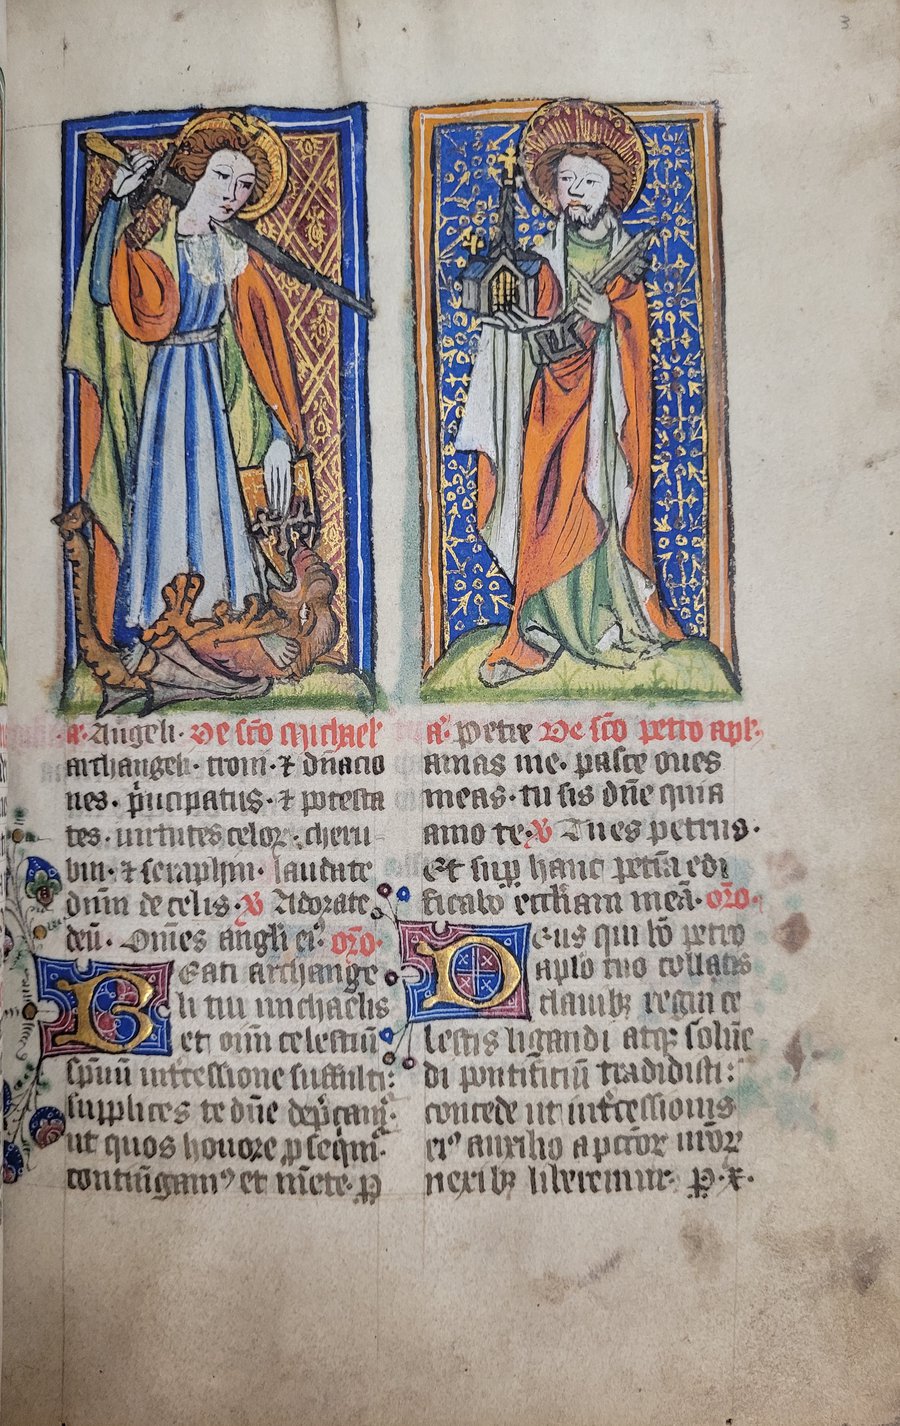 3
a. Angeli. De sco michael
archangeli. troni. ⁊ dnacio
nes. pncipatus. ⁊ potesta
tes. uirtutes celoꝝ. cheru
bin. ⁊ seraphin. laudate
dnm de celis. V Adorate
deu. Omes angli eiꝰ. oro.
Beati archange
li tui michaelis
et oim celestiu
spuu intcessione suffulti:
supplices te dne depcamꝰ.
ut quos honore psequimꝰ.
contingamꝰ et mente. P
a. Petre De sco petro apl.
amas me. pasce oues
meas. tu sis dne quia
amo te. V Tu es petrus.
Et sup hanc petra edi
ficabo ecclesiam mea. oro.
Deus qui bo petro
aplo tuo collatis
clauibꝫ regni ce
lestis ligandi atqꝫ soluen
di pontificiu tradidisti:
concede ut intcessionis
eiꝰ auxilio a pctoꝝ nroꝝ
nexibꝫ liberemur. P. x.